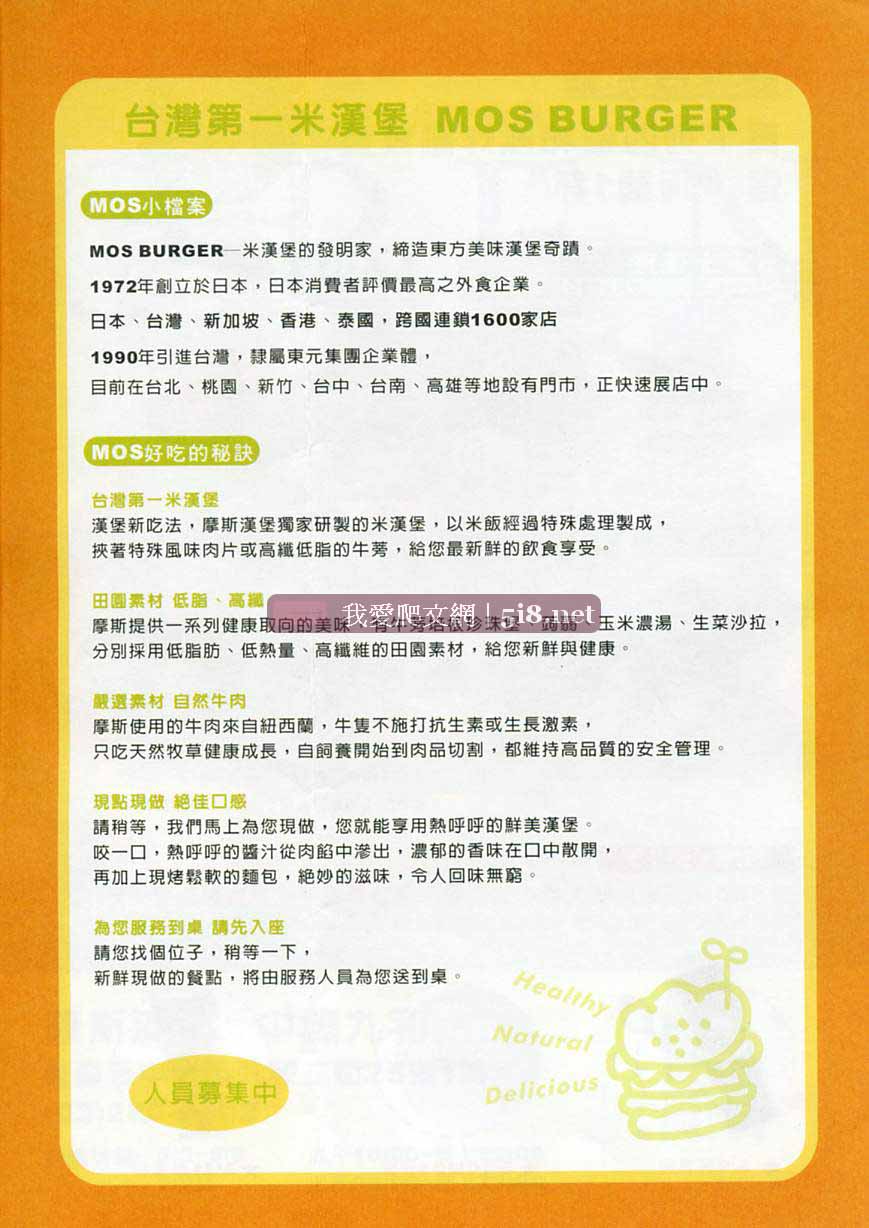 台灣第一米漢堡 MOS BURGER
MOS小檔案
MOS BURGER—米漢堡的發明家，締造東方美味漢堡奇蹟。
1972年創立於日本，日本消費者評價最高之外食企業。
日本、台灣、新加坡、香港、泰國，跨國連鎖1600家店
1990年引進台灣，隸屬東元集團企業體，
目前在台北、桃園、新竹、台中、台南、高雄等地設有門市，正快速展店中。
MOS好吃的秘訣
台灣第一米漢堡
漢堡新吃法，摩斯漢堡獨家研製的米漢堡，以米飯經過特殊處理製成，
挾著特殊風味肉片或高纖低脂的牛蒡，給您最新鮮的飲食享受。
田園素材 低脂、高纖
我愛爬文網 | 5i8.net
摩斯提供一系列健康取向的美味，有牛蒡培根珍珠堡、蒟蒻、玉米濃湯、生菜沙拉，
分別採用低脂肪、低熱量、高纖維的田園素材，給您新鮮與健康。
嚴選素材 自然牛肉
摩斯使用的牛肉來自紐西蘭，牛隻不施打抗生素或生長激素，
只吃天然牧草健康成長，自飼養開始到肉品切割，都維持高品質的安全管理。
現點現做 絕佳口感
請稍等，我們馬上為您現做，您就能享用熱呼呼的鮮美漢堡。
咬一口，熱呼呼的醬汁從肉餡中滲出，濃郁的香味在口中散開，
再加上現烤鬆軟的麵包，絕妙的滋味，令人回味無窮。
為您服務到桌 請先入座
請您找個位子，稍等一下，
新鮮現做的餐點，將由服務人員為您送到桌。
Healthy
Natural
Delicious
人員募集中